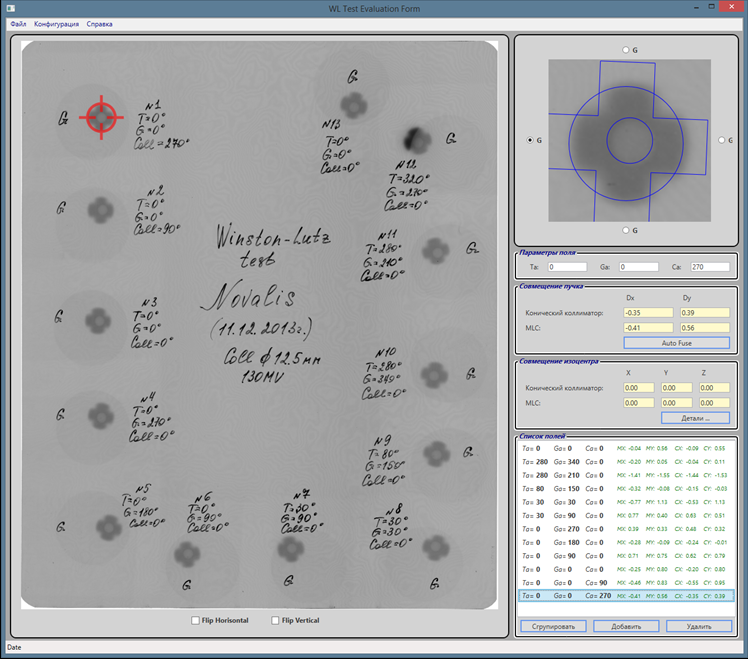 WL Test Evaluation Form
Файл Конфигурация Справка
G
N1
T=0°
G=0°
Coll=270°
G
N2
T=0°
G=0°
Coll=90°
G
N3
T=0°
G=0°
Coll=0°
G
N4
T=0°
G=270°
Coll=0°
G
N5
T=0°
G=180°
Coll=0°
G
N6
T=0°
G=90°
Coll=0°
G
N7
T=30°
G=90°
Coll=0°
G
N8
T=30°
G=30°
Coll=0°
G
N9
T=80°
G=150°
Coll=0°
G
N10
T=280°
G=340°
Coll=0°
G
N11
T=280°
G=210°
Coll=0°
G
N12
T=320°
G=270°
Coll=0°
G
N13
T=0°
G=0°
Coll=0°
G
Winston-Lutz
test
Novalis
(11.12.2013г.)
Coll ϕ 12.5мм
130MV
Flip Horisontal Flip Vertical
G
G
G
G
Параметры поля
Ta: 0 Ga: 0 Ca: 270
Совмещение пучка
Dx Dy
Конический коллиматор: -0.35 0.39
MLC: -0.41 0.56
Auto Fuse
Совмещение изоцентра
X Y Z
Конический коллиматор: 0.00 0.00 0.00
MLC: 0.00 0.00 0.00
Детали ...
Список полей
Ta= 0 Ga= 0 Ca= 0 MX: -0.04 MY: 0.56 CX: -0.09 CY: 0.55
Ta= 280 Ga= 340 Ca= 0 MX: -0.20 MY: 0.05 CX: -0.04 CY: 0.11
Ta= 280 Ga= 210 Ca= 0 MX: -1.41 MY: -1.55 CX: -1.44 CY: -1.53
Ta= 80 Ga= 150 Ca= 0 MX: -0.32 MY: -0.08 CX: -0.15 CY: -0.03
Ta= 30 Ga= 30 Ca= 0 MX: -0.77 MY: 1.13 CX: -0.53 CY: 1.13
Ta= 30 Ga= 90 Ca= 0 MX: 0.77 MY: 0.40 CX: 0.63 CY: 0.51
Ta= 0 Ga= 270 Ca= 0 MX: 0.39 MY: 0.33 CX: 0.48 CY: 0.32
Ta= 0 Ga= 180 Ca= 0 MX: -0.28 MY: -0.09 CX: -0.24 CY: -0.01
Ta= 0 Ga= 90 Ca= 0 MX: 0.71 MY: 0.75 CX: 0.62 CY: 0.79
Ta= 0 Ga= 0 Ca= 0 MX: -0.25 MY: 0.80 CX: -0.20 CY: 0.80
Ta= 0 Ga= 0 Ca= 90 MX: -0.46 MY: 0.83 CX: -0.55 CY: 0.95
Ta= 0 Ga= 0 Ca= 270 MX: -0.41 MY: 0.56 CX: -0.35 CY: 0.39
Сгрупировать Добавить Удалить
Date